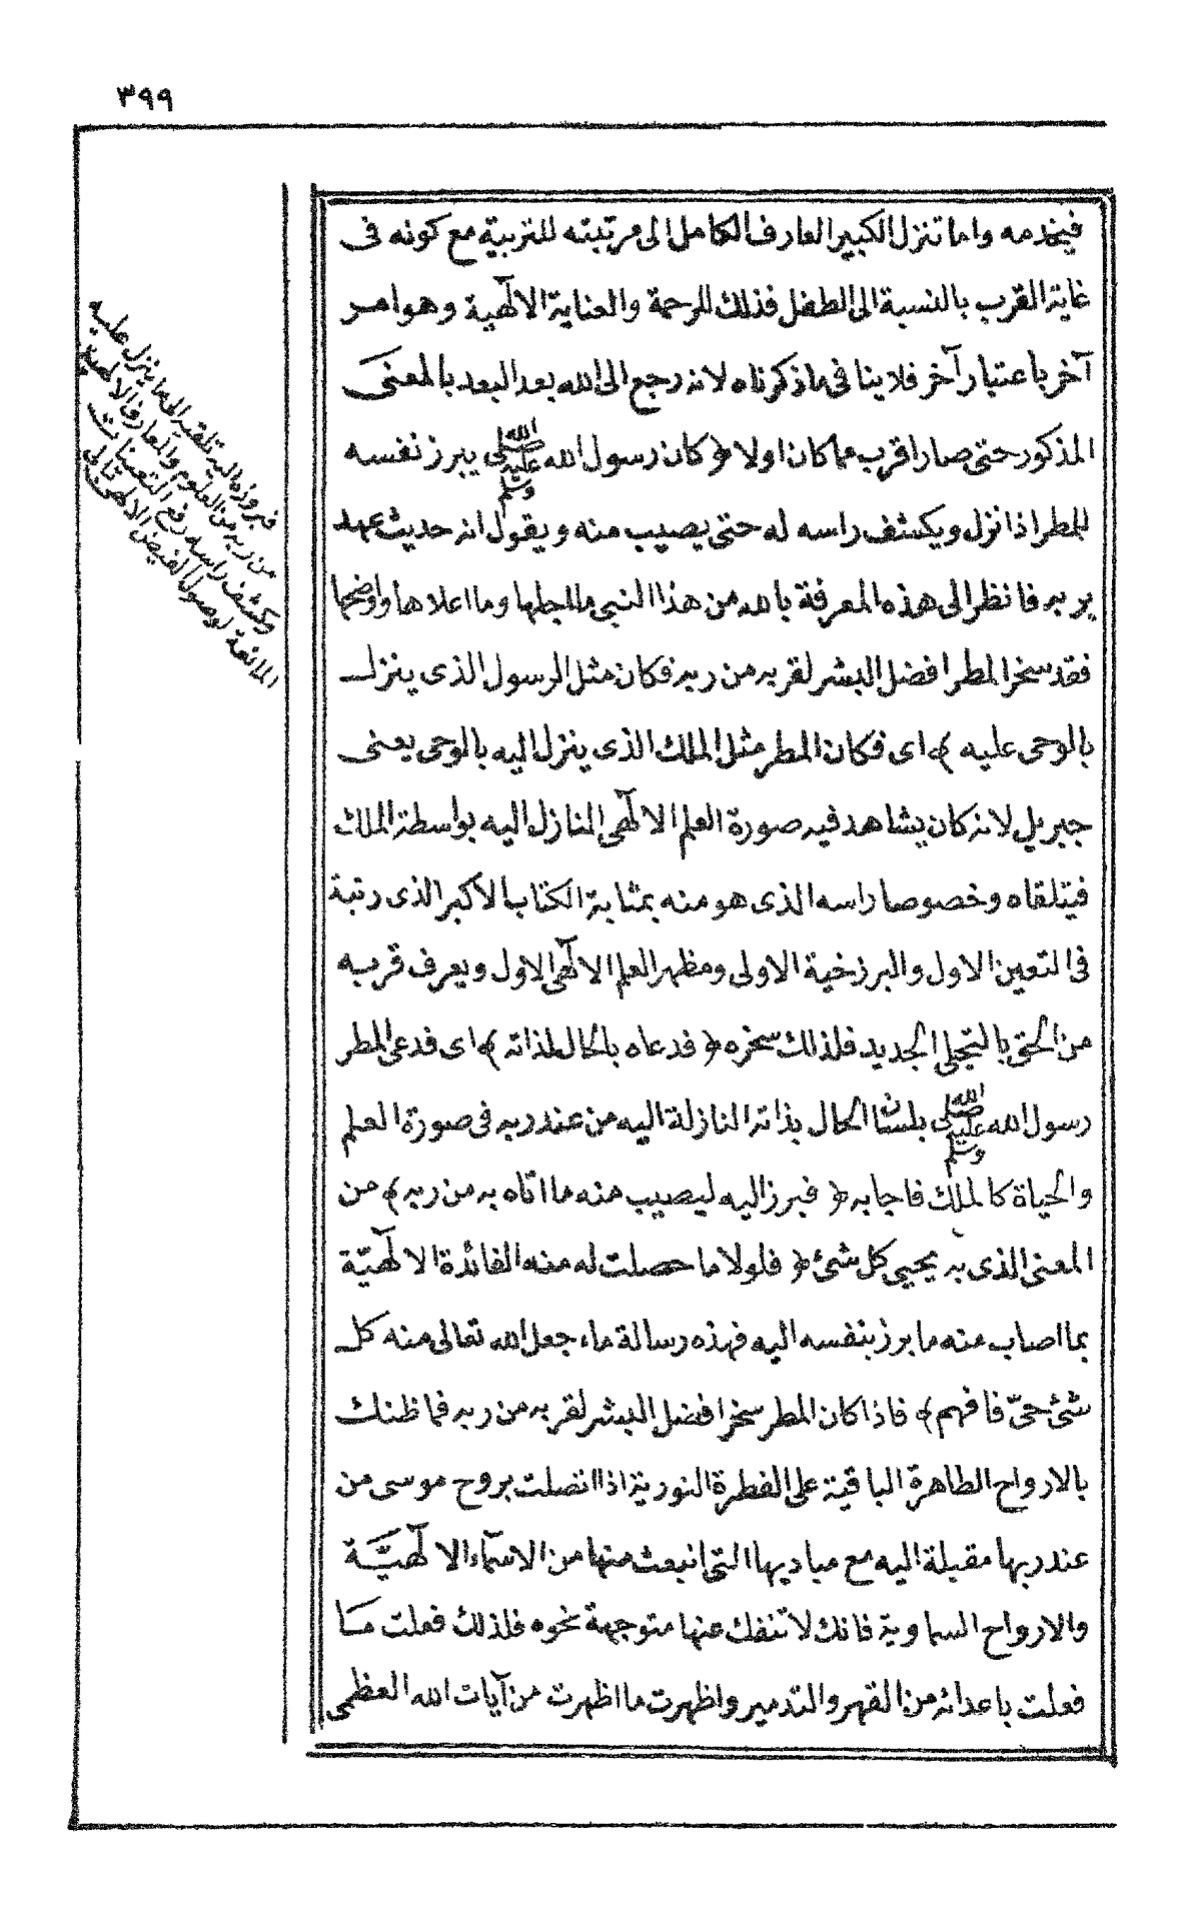 ٣٩٩
فيخدمه واما تنزل الكبير العارف الكامل الى مرتبته للتربية مع كونه فى
غاية القرب بالنسبة الى الطفل فذلك للرحمة والعناية الالٓهية وهو امر
آخر باعتبار آخر فلا ينافى ماذكرناه لانه رجع الى الله بعد البعد بالمعنى
المذكور حتى صار اقرب مما كان اولا ﴿ كان رسول الله صلى الله عليه وسلم يبرز نفسه
للمطر اذا نزل ويكشف راسه له حتى يصيب منه ويقول انه حديث عهد
بربه فانظر الى هذه المعرفة بالله من هذا النبى ما اجلها وما اعلاها واوضحها
فقد سخر المطر افضل البشر لقربه من ربه فكان مثل الرسول الذى ينزل
بالوحى عليه ﴾ اى فكان المطر مثل الملك الذى ينزل اليه بالوحى يعنى
جبريل لانه كان يشاهد فيه صورة العلم الالٓهى النازل اليه بواسطة الملك
فيتلقاه وخصوصا راسه الذى هو منه بمثابة الكتاب الاكبر الذى رتبة
فى التعين الاول والبرزخية الاولى ومظهر العلم الالٓهى الاول ويعرف قربه
من الحق بالتجلى الجديد فلذلك سخره ﴿ فدعاه بالحال لذاته ﴾ اى فدعى المطر
رسول الله صلى الله عليه وسلم بلسان الحال بذاته النازلة اليه من عند ربه فى صورة العلم
والحياة كالملك فاجابه ﴿ فبرز اليه ليصيب منه ما اتاه به من ربه ﴾ من
المعنى الذى به يحيى كل شئ ﴿ فلولا ما حصلت له منه الفائدة الالٓهيّة
بما اصاب منه ما برز بنفسه اليه فهذه رسالة ماء جعل الله تعالى منه كل
شئ حىّ فافهم ﴾ فاذا كان المطر سخر افضل البشر لقربه من ربه فما ظنك
بالارواح الطاهرة الباقية على الفطرة النورية اذا اتصلت بروح موسى من
عند ربها مقبلة اليه مع مباديها التى انبعث منها من الاسمآء الالٓهيّة
والارواح السماوية فانك لا تنفك عنها متوجهة نحوه فلذلك فعلت ما
فعلت باعدائه من القهر والتدمير واظهرت ما اظهرت من آيات الله العظمى
فبروزه اليه تلقيه الى ما ينزل عليه
من ربه من العلوم والمعارف الالٓهية
وكشف راسه رفع التعينات
المانعة لوصول الفيض الالٓهى